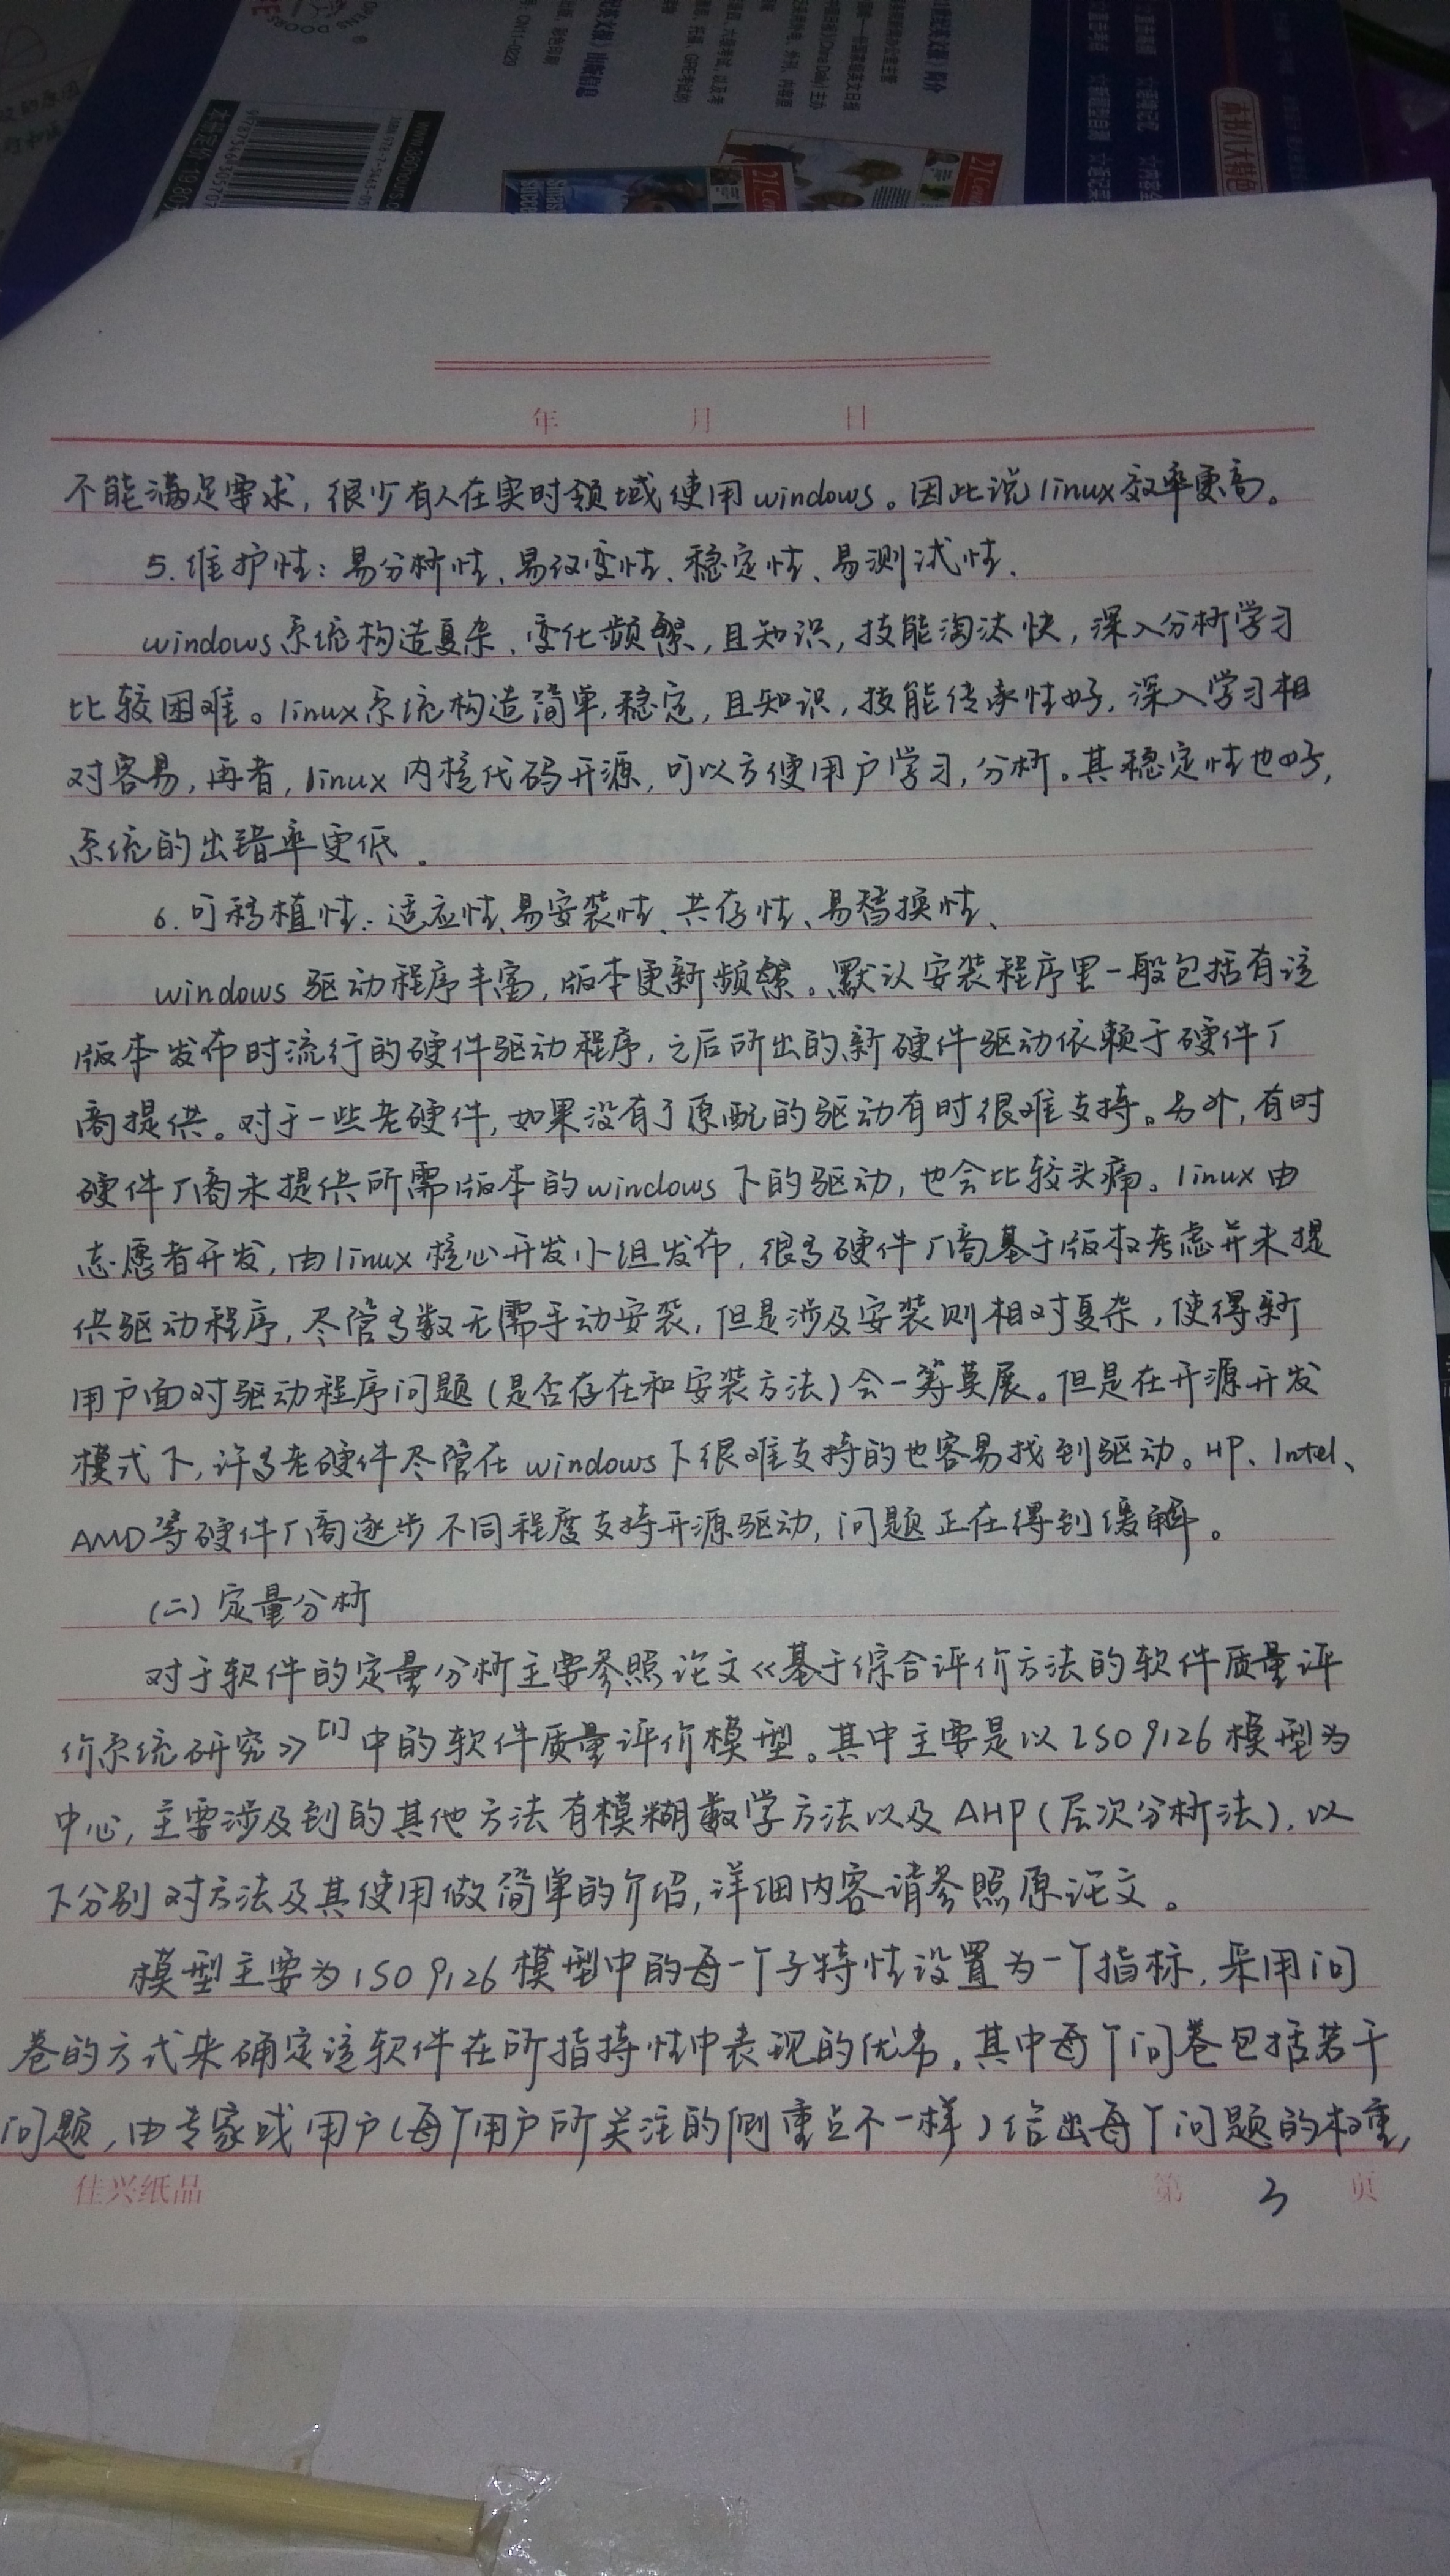 年 月 日
不能满足需求，很少有人在实时领域使用windows。因此说linux效率更高。
5.维护性：易分析性、易改变性、稳定性、易测试性、
windows系统构造复杂、变化频繁，且知识，技能淘汰快，深入分析学习
比较困难。linux系统构造简单，稳定，且知识，技能传承性好，深入学习相
对容易，再者，linux内核代码开源，可以方便用户学习，分析。其稳定性也好，
系统的出错率更低．
6.可移植性：适应性、易安装性、共存性、易替换性、
windows驱动程序丰富，版本更新频繁。默认安装程序里一般包括有该
版本发布时流行的硬件驱动程序，之后所出的新硬件驱动依赖于硬件厂
商提供。对于一些老硬件，如果没有了原配的驱动有时很难支持。另外，有时
硬件厂商未提供所需版本的windows下的驱动，也会比较头痛。linux由
志愿者开发，由linux核心开发小组发布，很多硬件厂商基于版权考虑并未提
供驱动程序，尽管多数无需手动安装，但是涉及安装则相对复杂，使得新
用户面对驱动程序问题（是否存在和安装方法）会一筹莫展。但是在开源开发
模式下，许多老硬件尽管在windows下很难支持的也容易找到驱动。HP、Intel、
AMD等硬件厂商逐步不同程度支持开源驱动，问题正在得到缓解。
（二）定量分析
对于软件的定量分析主要参照论文《基于综合评价方法的软件质量评
价系统研究》[1]中的软件质量评价模型。其中主要是以ISO9126模型为
中心，主要涉及到的其他方法有模糊数学方法以及AHP（层次分析法），以
下分别对方法及其使用做简单的介绍，详细内容请参照原论文。
模型主要为ISO9126模型中的每一个子特性设置为一个指标，采用问
卷的方式来确定该软件在所指持性中表现的优劣。其中每个问卷包括若干
问题，由专家或用户（每个用户所关注的侧重点不一样）给出每个问题的权重，
佳兴纸品 第 3 页